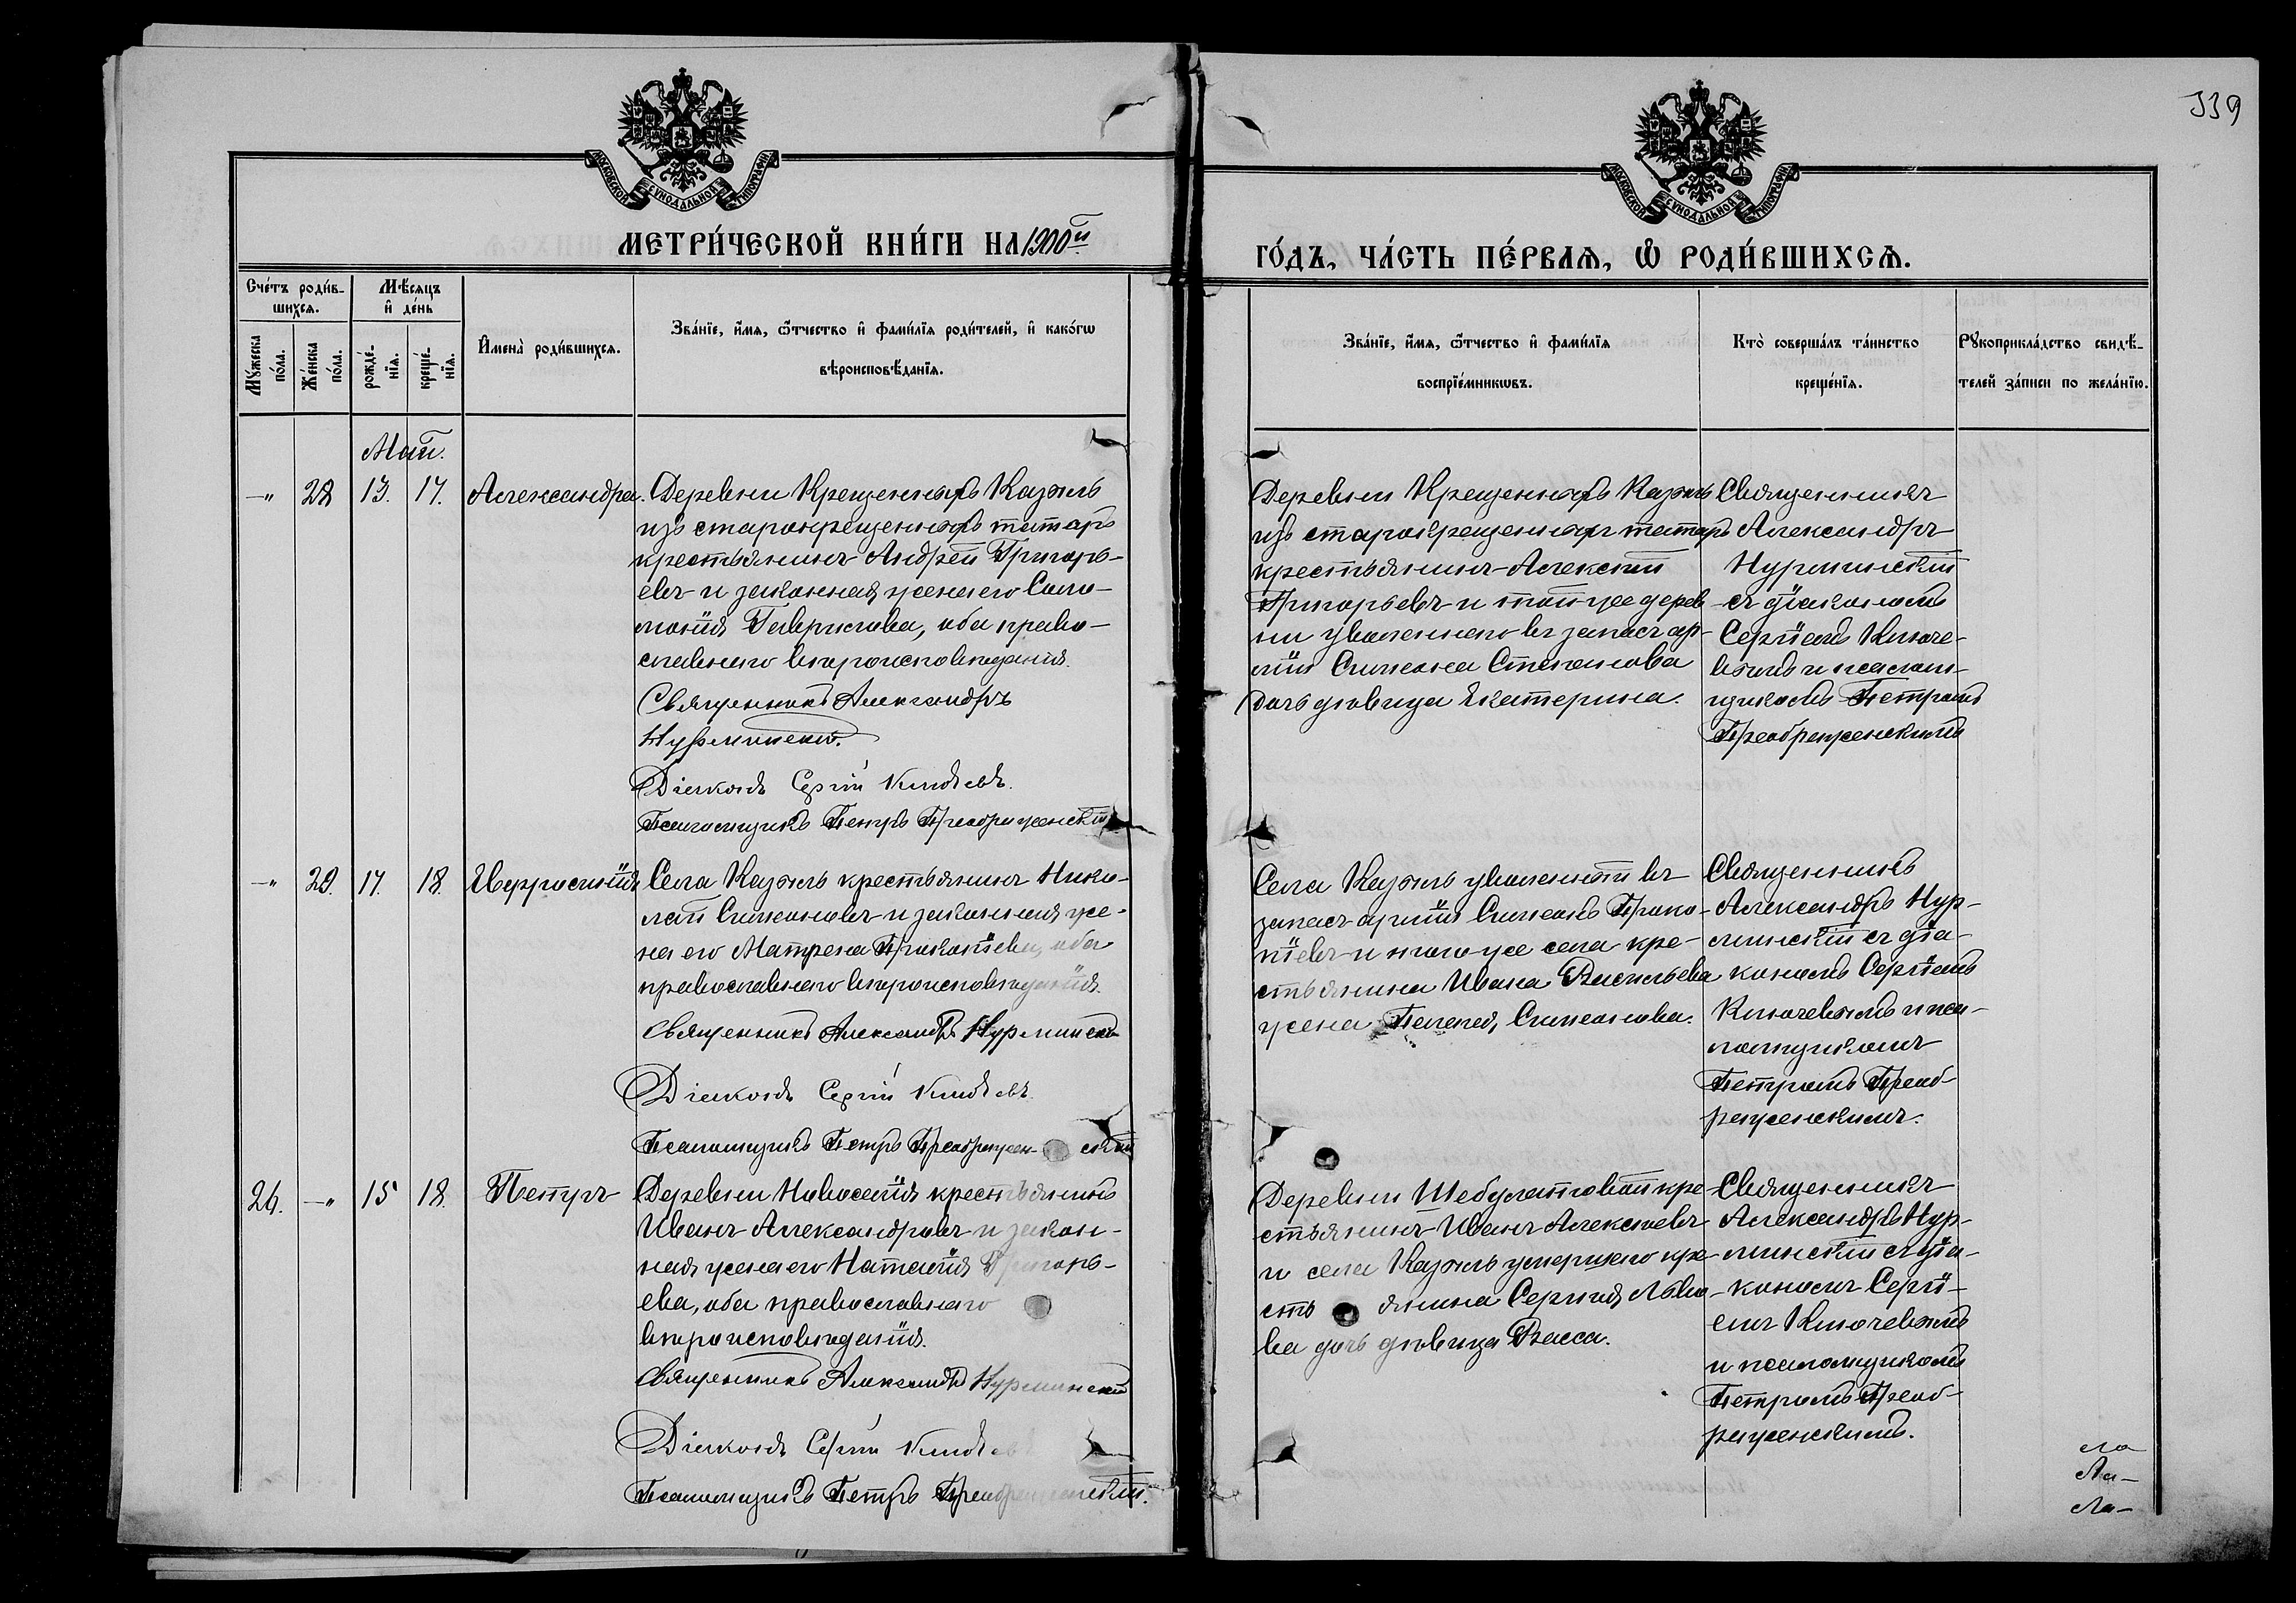 339
МОСКОВСКОЙ СѴНОДАЛЬНОЙ ТИПОГРАФІИ
МОСКОВСКОЙ СѴНОДАЛЬНОЙ ТИПОГРАФІИ
МЕТРИ́ЧЕСКОЙ КНИ́ГИ НА 1900й
ГО́ДЪ, ЧА́СТЬ ПЕ́РВАѦ, Ѡ҆ РОДИ́ВШИХСѦ.
Сче́тъ роди́в-
шихсѧ.
Мꙋ́жеска
по́ла.
Же́нска
по́ла.
Мѣ́сѧцъ
и҆ де́нь
рожде́-
нїѧ.
креще́-
нїѧ.
И҆мена̀ роди́вшихсѧ.
Зва́нїе, и҆́мѧ, ѻ҆́тчество и҆ фами́лїѧ роди́телей, и҆ како́гѡ
вѣроисповѣ́данїѧ.
Зва́нїе, и҆́мѧ, ѻ҆́тчество и҆ фами́лїѧ
воспрїе́мникѡвъ.
Кто̀ соверша́лъ та́инство
креще́нїѧ.
Рꙋкоприкла́дство свидѣ́-
телей за́писи по жела́нїю.
Май.
—„ 28 13. 17. Александра.
Деревни Крещенныхъ Казыль
изъ старокрещенныхъ татаръ
крестьянинъ Андрей Григорь-
евъ и законная жена его Соло-
монія Гаврилова, оба право-
славнаго вѣроисповѣданія.
Священникъ Александръ
Нурминскій.
Діаконъ Сергій Ключевъ.
Псаломщикъ Петръ Преображенскій
Деревни Крещенныхъ Казыль
изъ старокрещенныхъ татаръ
крестьянинъ Алексій
Григорьевъ и той же дерев-
ни уволеннаго въ запасъ ар-
міи Симеона Степанова
дочь дѣвица Екатерина.
Священникъ
Александръ
Нурминскій
съ діакономъ
Сергіемъ Ключе-
вымъ и псалом-
щикомъ Петромъ
Преображенскимъ
—„ 29. 17. 18. Евфросинія
Села Казыль крестьянинъ Нико-
лай Симеоновъ и законная же-
на его Матрена Прокопіева, оба
православнаго вѣроисповѣданія.
Священникъ Александръ Нурминскій
Діаконъ Сергій Ключевъ.
Псаломщикъ Петръ Преображен-скій
Села Казыль уволенный въ
запасъ арміи Симеонъ Проко-
піевъ и того же села кре-
стьянина Ивана Васильева
жена Симеонова.
Священникъ
Александръ Нур-
минскій съ діа-
кономъ Сергіемъ
Ключевымъ и пса-
ломщикомъ
Петромъ Преоб-
раженскимъ.
26. —„ 15 18. Петръ
Деревни Новоселія крестьянинъ
Иванъ Александровъ и закон-
ная жена его Наталія Григорь-
ева, оба православнаго
вѣроисповѣданія.
Священникъ Александръ Нурминскій
Діаконъ Сергій Ключевъ
Псаломщикъ Петръ Преображенскій.
Деревни кре-
стьянинъ Иванъ Алексѣевъ
и села Казыль умершаго кре-
стьянина Сергія Льво-
ва дочь дѣвица Васса.
Священникъ
Александръ Нур-
минскій съ діа-
кономъ Сергі-
емъ Ключевымъ
и псаломщикомъ
Петромъ Преоб-
раженскимъ.
ло
Ла-
ла-